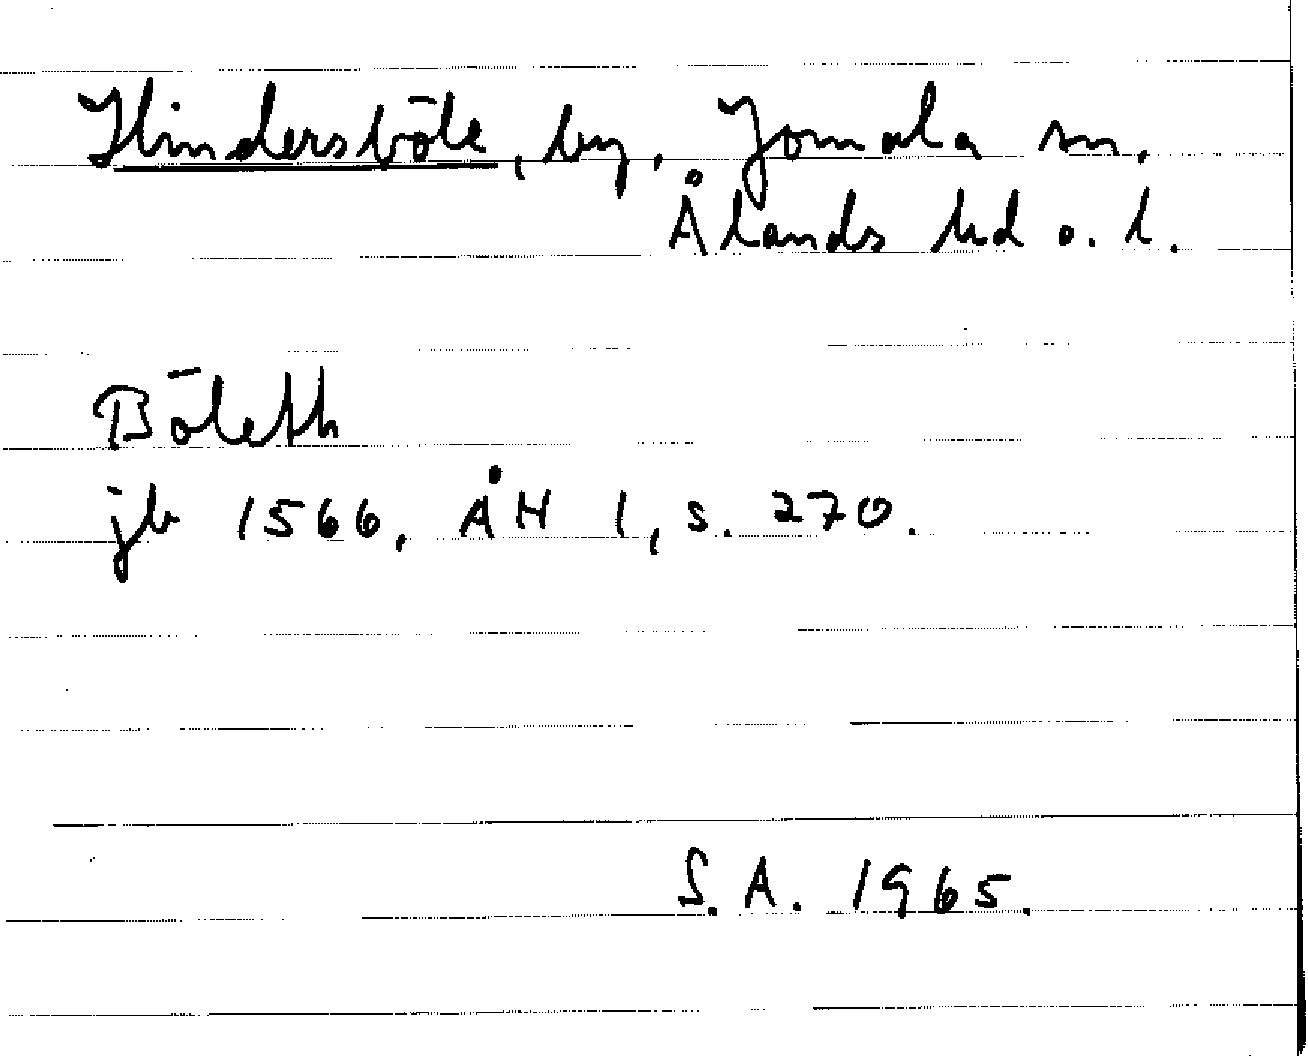 Hindersböle, by, Jomala sn,
Ålands hd o. l.
Böleth
jb 1566, ÅH 1, s. 270.
S.A. 1965.